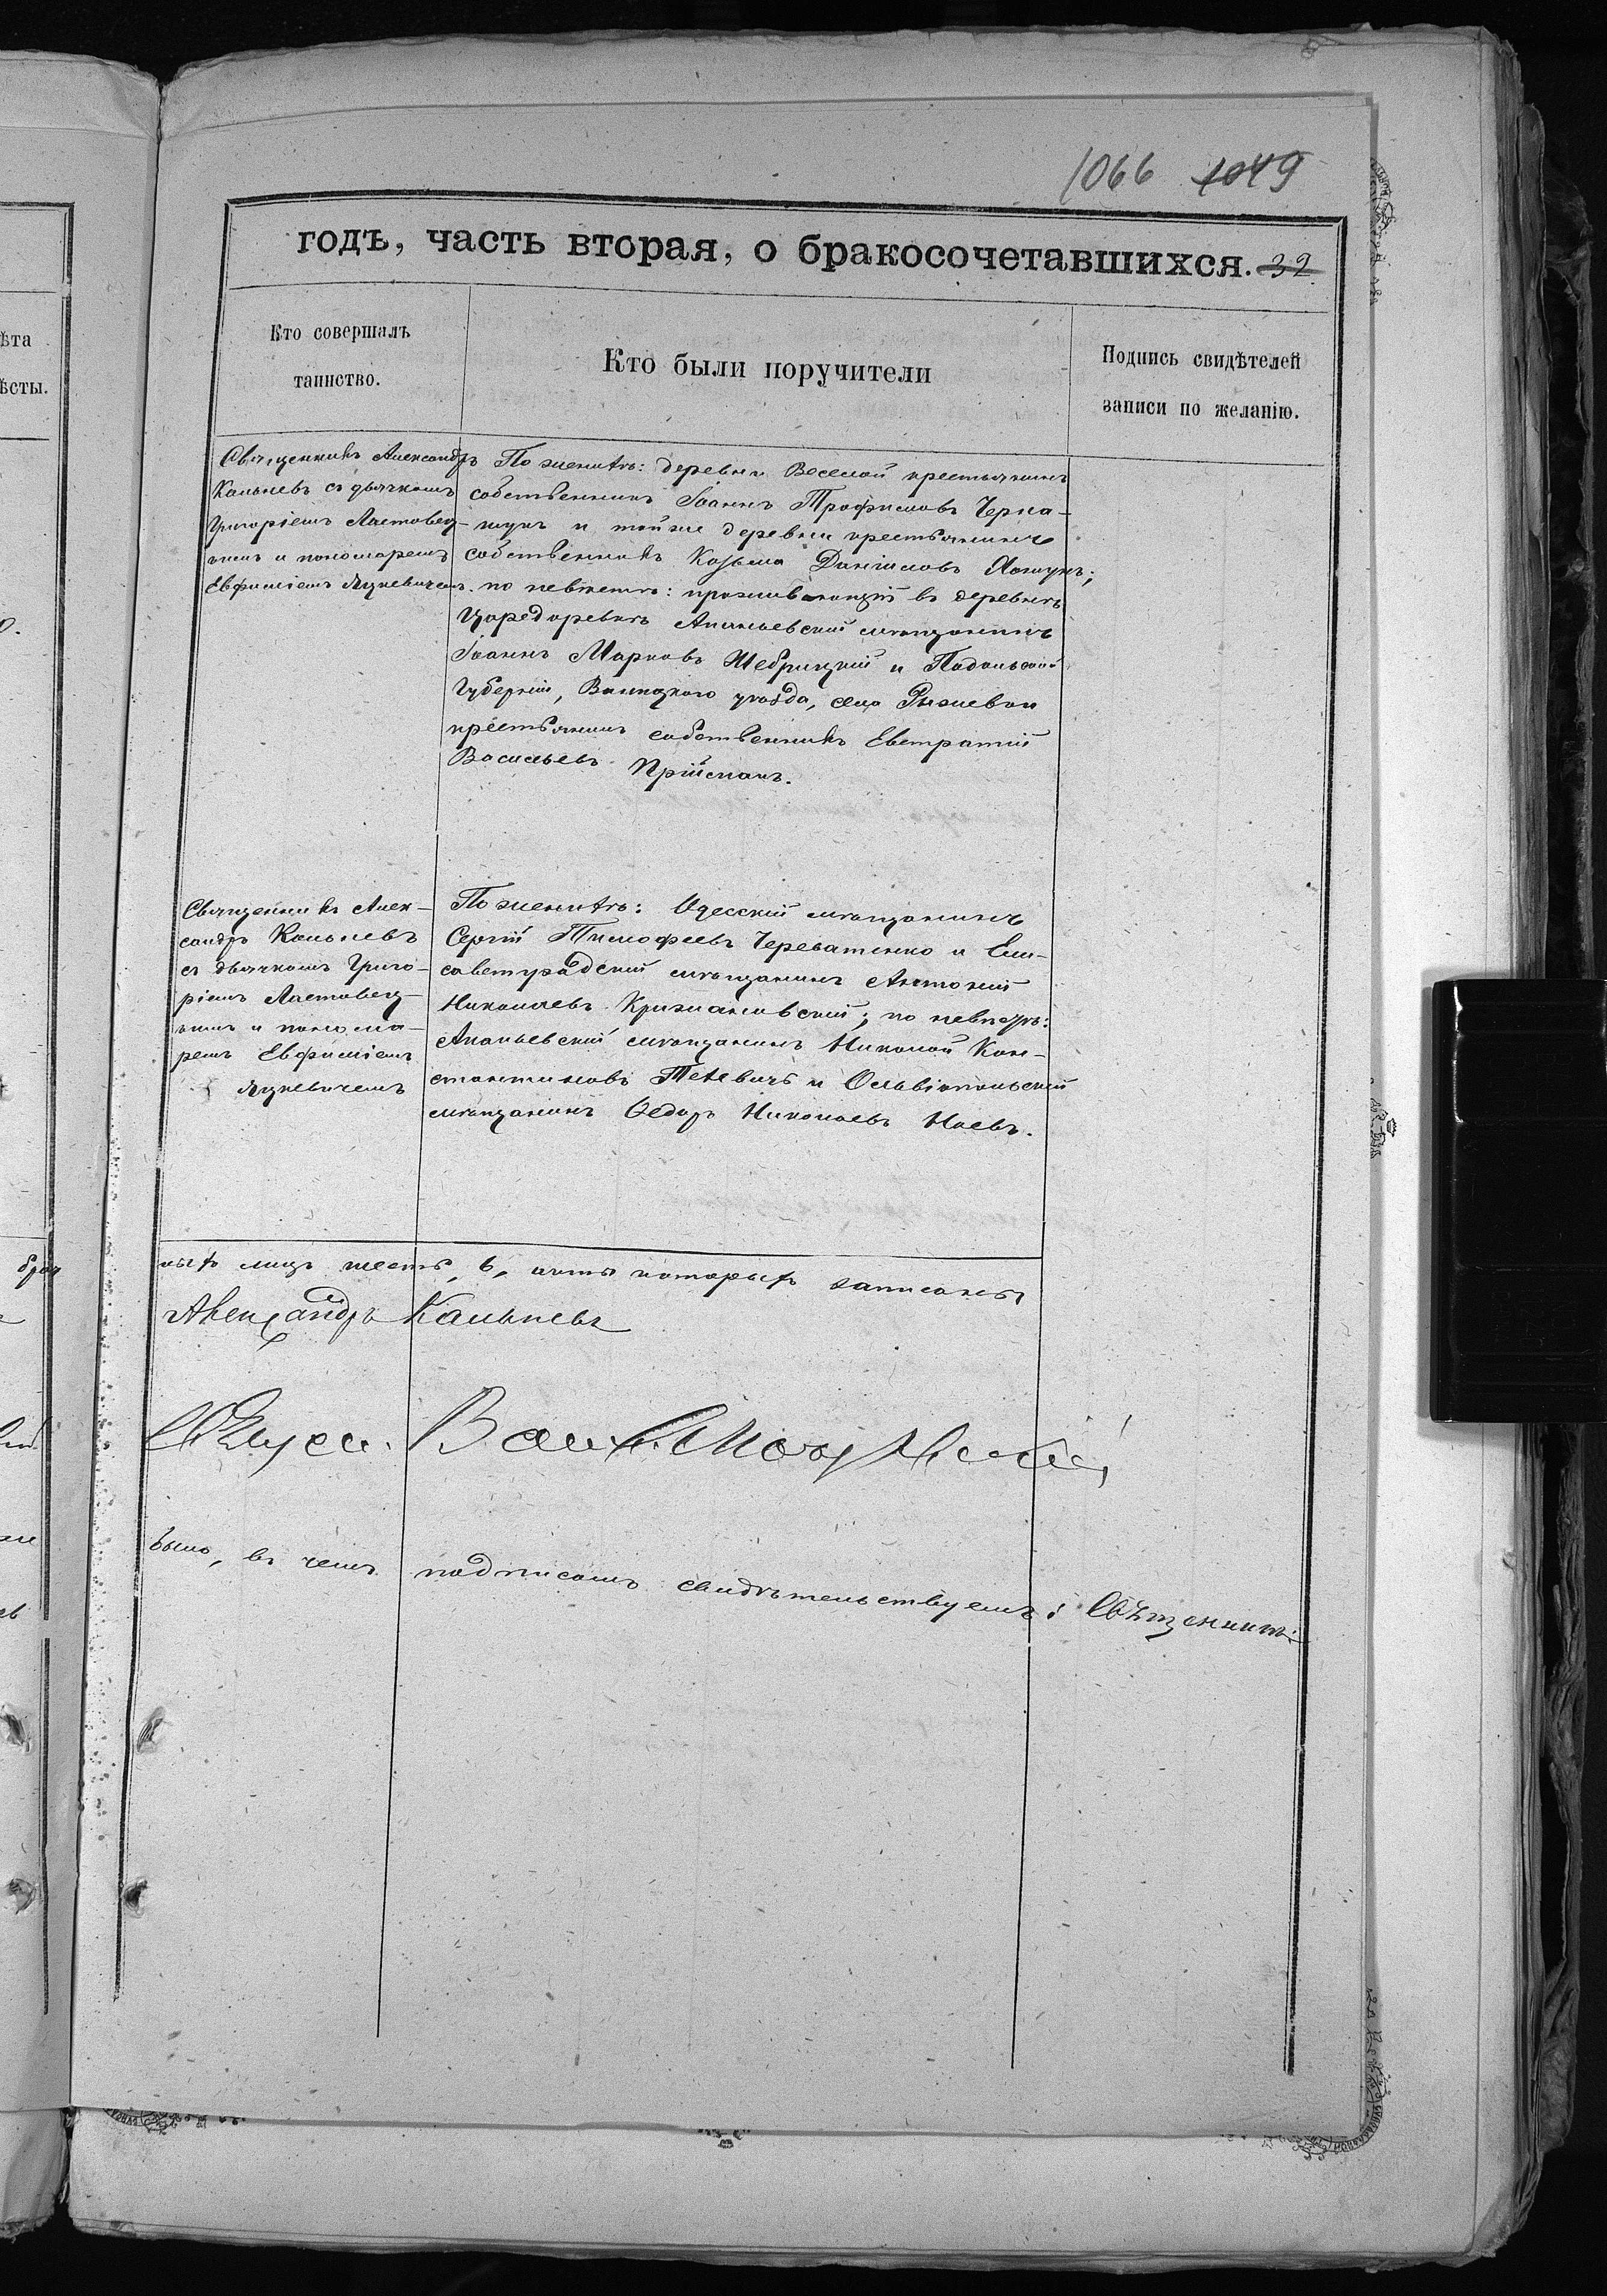 1066 1049
годъ, часть вторая, о бракосочетавшихся. 32
Кто совершалъ
таинство.
Кто были поручители
Подпись свидѣтелей
записи по желанію.
ѣта
ѣсты.
Священникъ Александръ
Кальневъ съ дьячкомъ
Григоріемъ Ластовец-
кимъ и пономаремъ
Евфиміемъ Яцкевичемъ.
По женихѣ: деревни Веселой крестьянинъ
собственникъ Іоаннъ Трофимовъ Черна-
тукъ и тойже деревни крестьянинъ
собственникъ Козьма Даніиловъ
по невѣстѣ: проживающій въ деревнѣ
Цередаревкѣ Ананьевскій мѣщанинъ
Іоаннъ Марковъ Жебрицкій и Подольской
Губерніи, Винницкаго уѣзда, села Рыжевки
крестьянинъ собственникъ Евстратій
Васильевъ Пріймакъ.
Священникъ Алек-
сандръ Кальневъ
съ дьячкомъ Григо-
ріемъ Ластовец-
кимъ и понома-
ремъ Евфиміемъ
Яцкевичемъ
По женихѣ: Одесскій мѣщанинъ
Сергій Тимофеевъ Череватенко и Ели-
саветградскій мѣщанинъ Антоній
Николаевъ Крижановскій; по невѣстѣ:
Ананьевскій мѣщанинъ Николай Кон-
стантиновъ Теневичъ и Ольвіопольскій
мѣщанинъ Ѳедоръ Николаевъ Наевъ.
ныхъ лицъ шесть, 6, акты которыхъ записаны
Александръ Кальневъ
было, въ чемъ подписомъ свидѣтельствуемъ: Священникъ